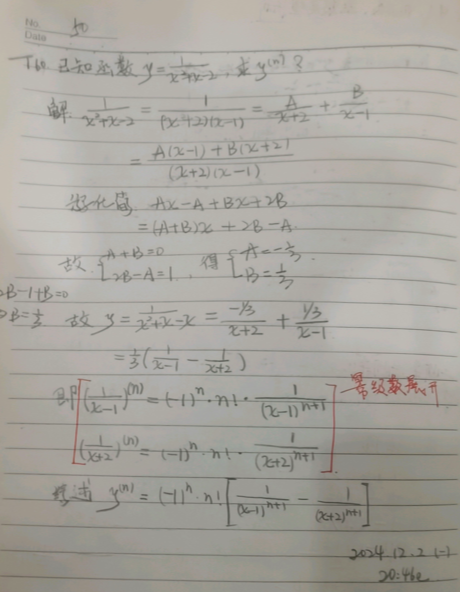 No.
Date
50
T10 已知函数 y = 1/(x²+x-2), 求 y^(n)?
解: 1/(x²+x-2) = 1/((x+2)(x-1)) = A/(x+2) + B/(x-1)
= (A(x-1)+B(x+2))/((x+2)(x-1))
Ax-A+Bx+2B
=(A+B)x+2B-A
故 { A+B=0 2B-A=1, 得 { A=-1/3 B=1/3.
2B-1+B=0
B=1/3
故 y = 1/(x²+x-x) = (-1/3)/(x+2) + (1/3)/(x-1)
= 1/3(1/(x-1) - 1/(x+2))
即 [(1/(x-1))^(n) = (-1)^n · n! · 1/(x-1)^(n+1)
幂级数展开
(1/(x+2))^(n) = (-1)^n · n! · 1/(x+2)^(n+1)]
y^(n) = (-1)^n · n! [1/(x-1)^(n+1) - 1/(x+2)^(n+1)]
2024.12.2 (一)